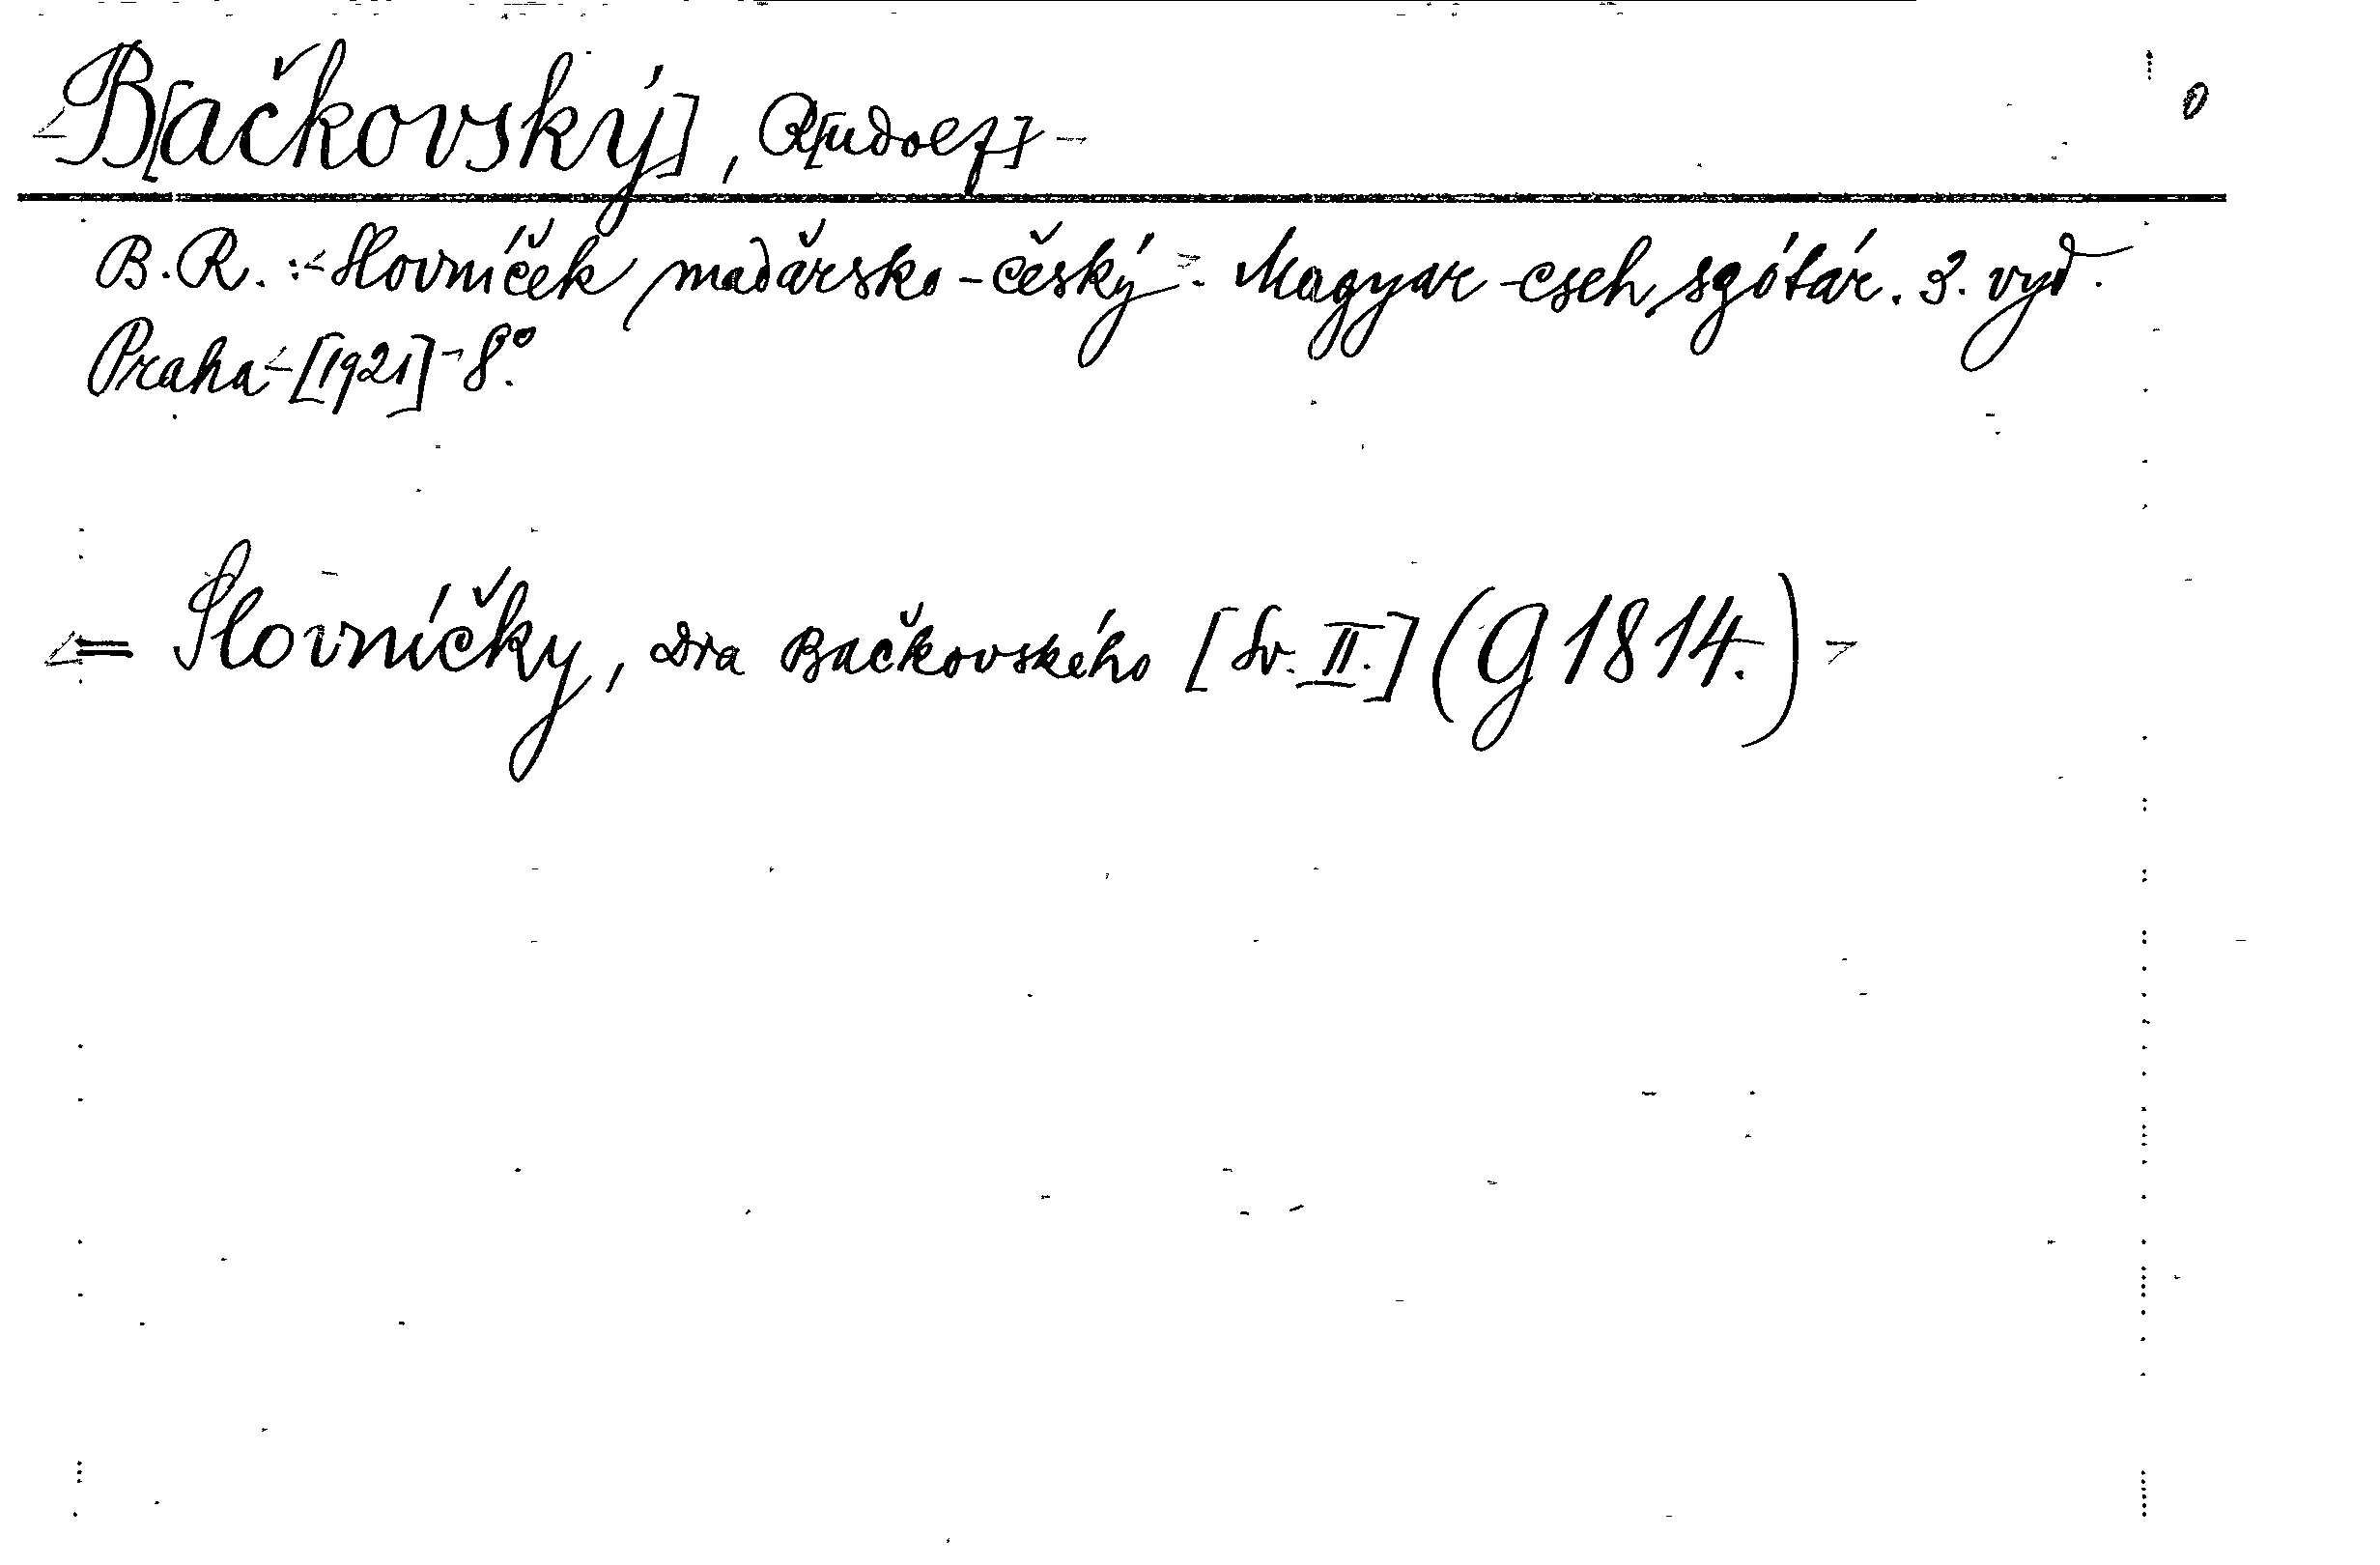 B[ačkovský], R[udolf]
B. R.: Slovníček maďarsko-český. Magyar-cseh szótár. 3. vyd.
Praha [1921] 8°.
= Slovníčky, Dra Bačkovského [Sv. II.] (G 1814.)